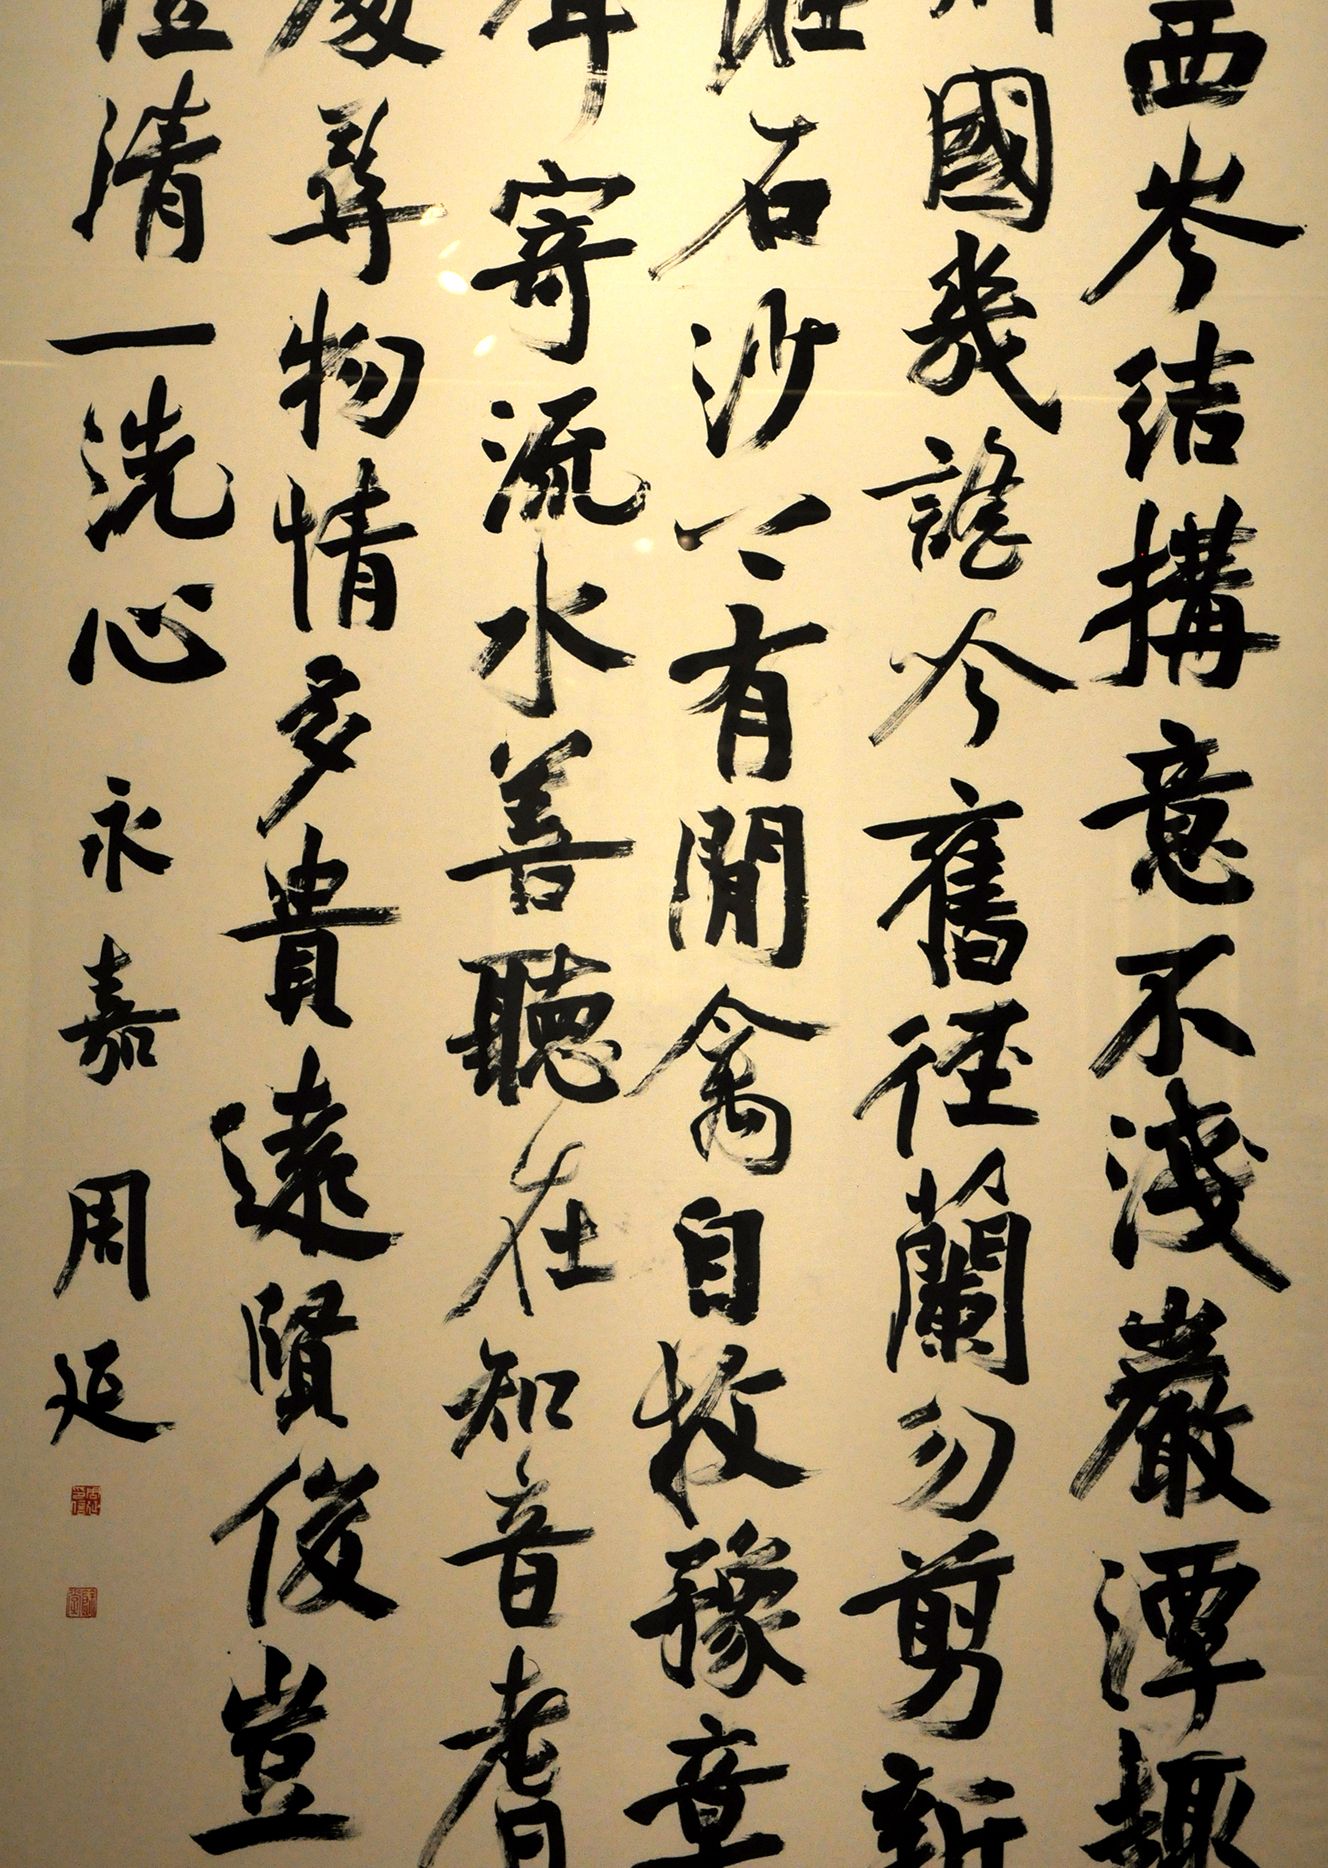 西岑結構意不淺巖潭趣
國幾謠吟舊徑蘭勿剪新
石沙沙有閒禽自牧豫章
寄流水善聽在知音耆
處尋物情多貴遠賢俊豈
澄清一洗心
永嘉周延